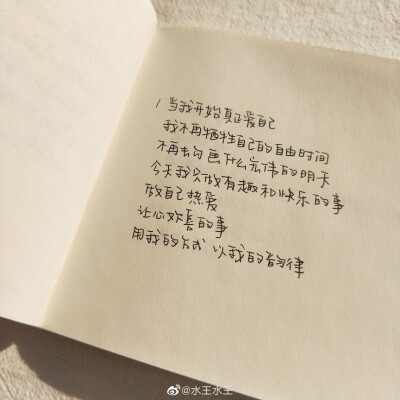 / 当我开始真正爱自己
我不再牺牲自己的自由时间
不再去勾画什么宏伟的明天
今天我只做有趣和快乐的事
做自己热爱
让心欢喜的事
用我的方式 以我的韵律
@水王水王